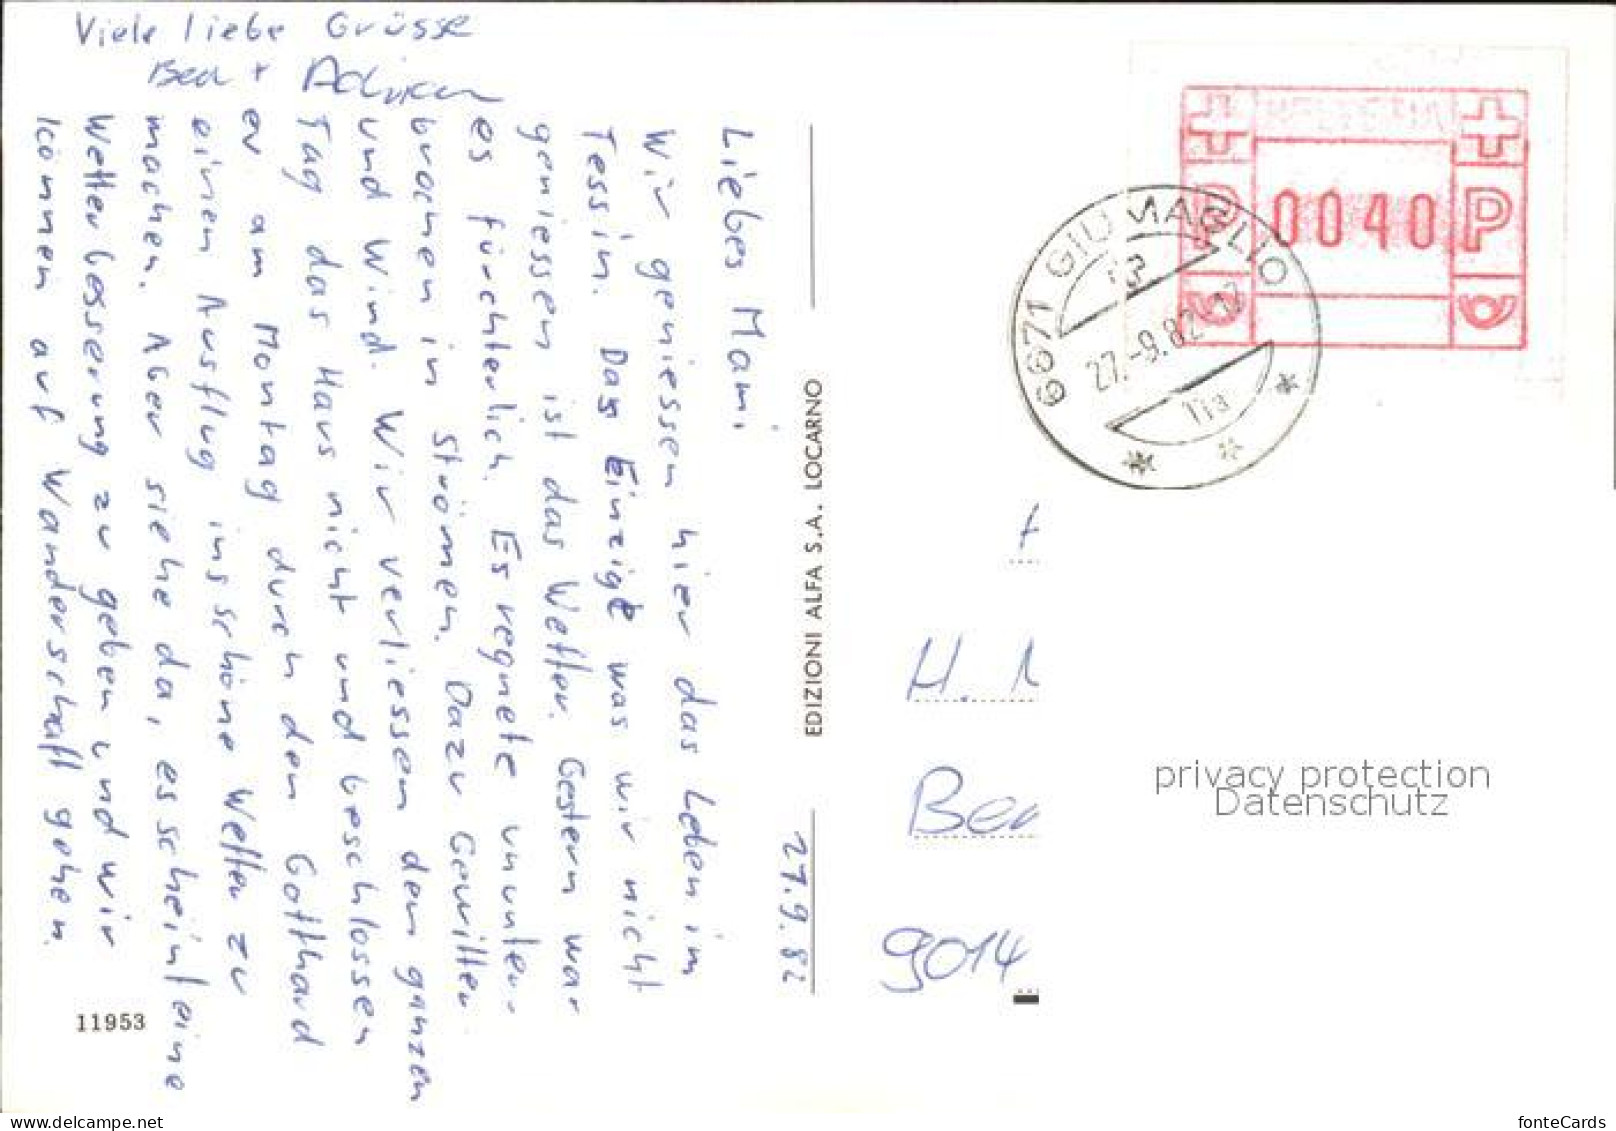 27.9.82
Liebes Mami
Wir geniessen hier das Leben im
Tessin. Das Einzige was wir nicht
geniessen ist das Wetter. Gestern war
es fürchterlich. Es regnete ununter-
brochen in Strömen. Dazu Gewitter
und Wind. Wir verliessen den ganzen
Tag das Haus nicht und beschlossen
am Montag durch den Gotthard
einen Ausflug ins schöne Wetter zu
machen. Aber siehe da, es scheint eine
Wetterbesserung zu geben und wir
können auf Wanderschaft gehen.
Viele liebe Grüsse
Bea + Adrian
11953
EDIZIONI ALFA S.A. LOCARNO
HELVETIA
P 0040 P
6671 GIUMAGLIO
27.-9.82-17
H.
Be
9014
privacy protection
Datenschutz
www.delcampe.net
fonteCards